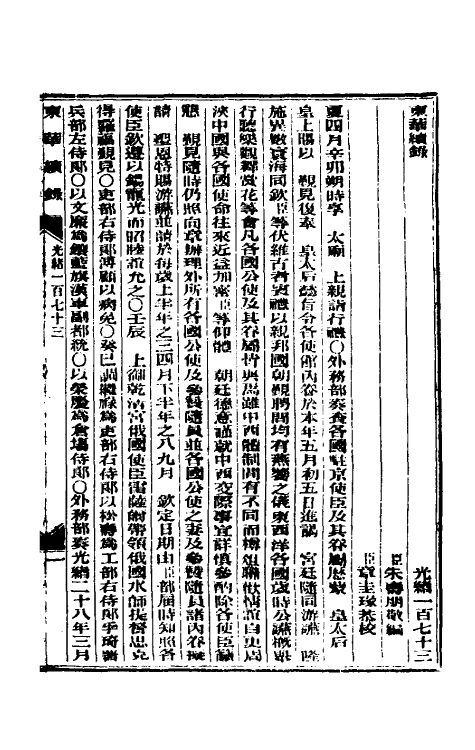 東華續錄
光緒一百七十三
臣朱壽朋敬編
臣章圭瑑恭校
夏四月辛卯朔時享 太廟 上親詣行禮○外務部奏各國駐京使臣及其眷屬歷蒙 皇太后
皇上賜以 覲見復奉 皇太后懿旨令各使館內眷於本年五月初五日進謁 宮廷隨同游讌 隆
施異數寰海同欽臣等伏維古者賓禮以親邦國朝覲聘問均有燕饗之儀東西洋各國歲時公讌概與
行聽樂觀舞賞花等會凡各國公使及其眷屬皆與焉雖中西體制間有不同而樽俎聯歡情誼自更周
浹中國與各國使命往來近益加密臣等仰體 朝廷德意謹就中西交際事宜詳慎參酌除各使臣
覲見隨時仍照向章辦理外所有各國公使及參贊隨員並各國公使之妻及參贊隨員諸內眷擬
請 聖恩特賜游讌並請於每歲上半年之三四月下半年之八九月 欽定日期由臣部屆時知照各
使臣欽遵以錫寵光而昭睦誼允之○壬辰 上御乾清宮俄國使臣雷薩爾帶領俄國水師提督思克
得羅福覲見○吏部右侍郎溥顧以病免○癸巳調繼祿為吏部右侍郎以松壽為工部右侍郎李端棻
兵部左侍郎○以文廉為鑲藍旗漢軍副都統○以榮慶為倉場侍郎○外務部奏光緒二十八年三月
東華續錄 光緒一百七十三 一